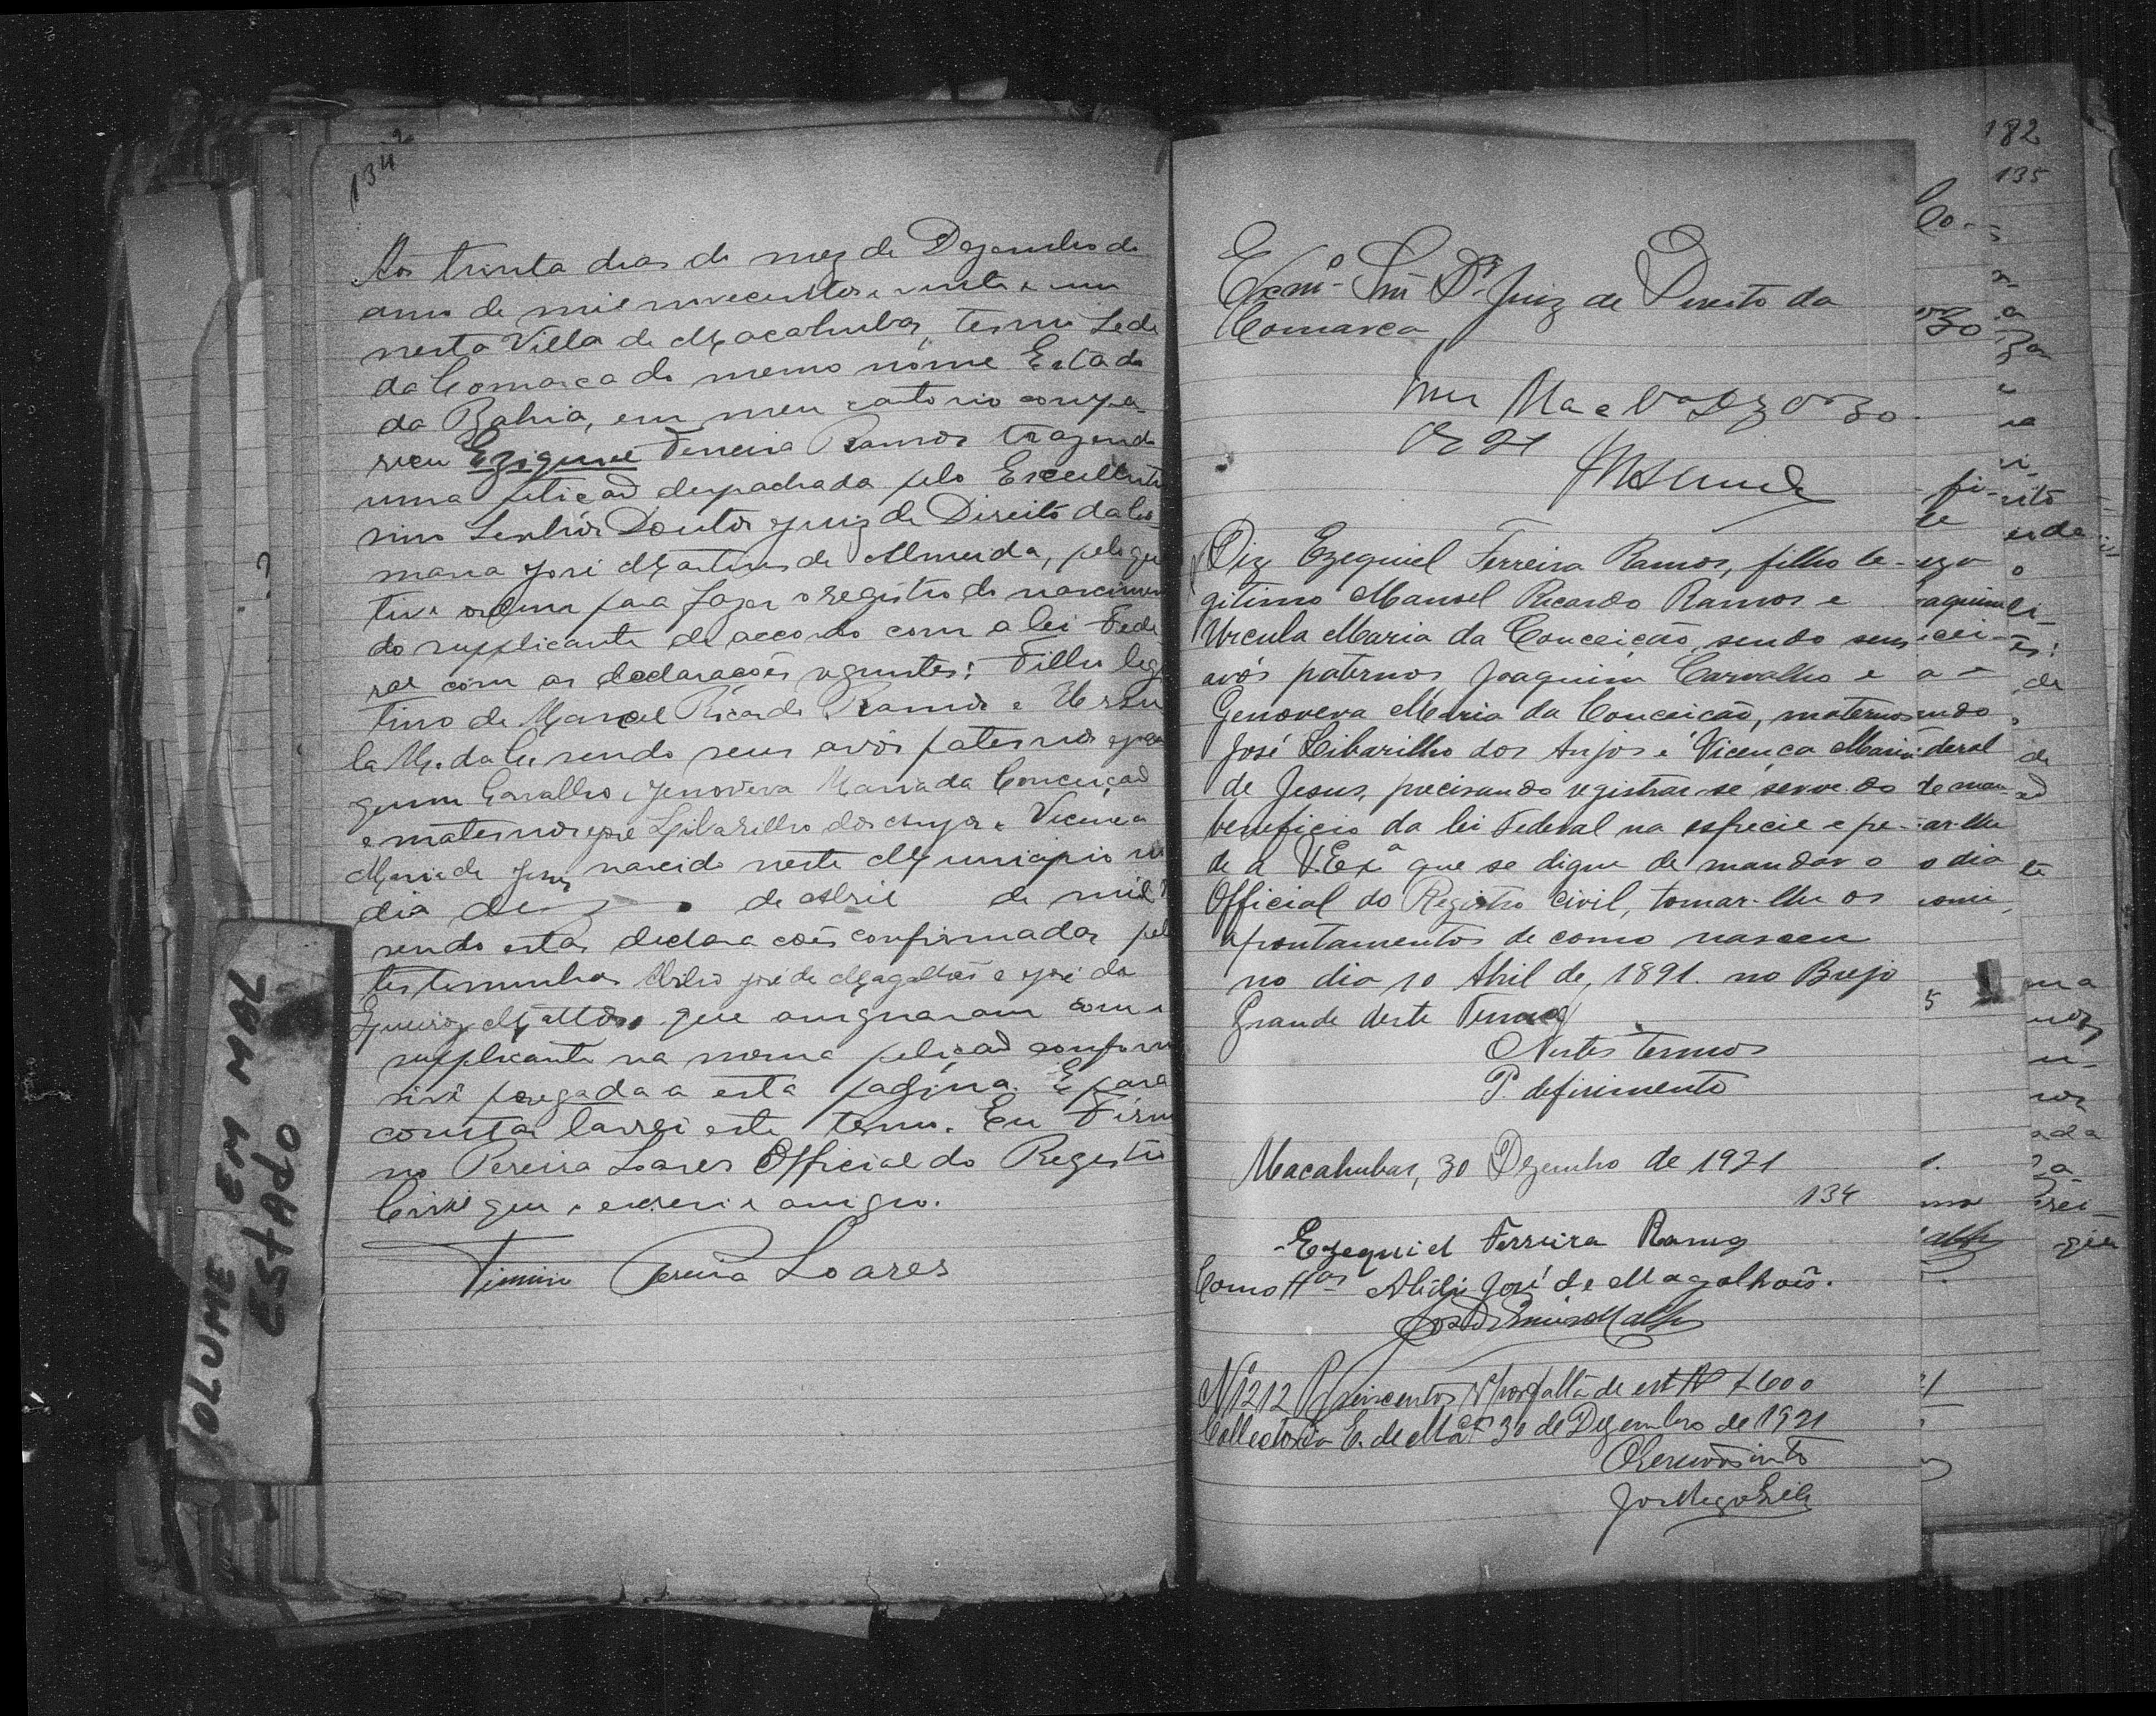 134
Aos trinta dias do mez de Dezembro do
anno de mil novecentos e vinte e um
nesta Villa de Macahubas, termo Sede
da Comarca do mesmo nome Estado
da Bahia, em meu cartorio compa-
receu Eziquiel Ferreira Ramos trazendo
uma petição despachada pelo Excellentis
simo Senhór Doutor Juiz de Direito da Co-
marca José Martins de Almeida, pelo que
tive ordem para fazer o registro do nascimen
do supplicante de accordo com a lei Fede
ral com as declarações seguintes: Filho legi
timo de Manoel Ricardo Ramos e Ursu
la M. da C. sendo seus avós paternos Joa
quim Carvalho e Jenoveva Maria da Conceição
e maternos José Libarilho dos Anjos e Vicença
Maria de Jesus nascido neste Municipio no
dia de de Abril de mil
sendo estas declarações confirmadas pel
testemunhas José de Magalhães e José de
Queiroz Mattos que assignaram com o
supplicante na mesma petição
pregada a esta pagina. E para
constar lavrei este termo. Eu Firmi
no Pereira Soares Official do Registro
Civil que o escrevi e assigno.
Firmino Pereira Soares
VOLUME EM MAL
ESTADO
182
135
Exmº Snr Dr Juiz de Direito da
Comarca
30
de 21
Diz Ezequiel Ferreira Ramos, filho le-
gitimo Manoel Ricardo Ramos e
Urcula Maria da Conceição, sendo seus
avós paternos Joaquim Carvalho e
Genoveva Maria da Conceição, maternos
José Libarilho dos Anjos e Vicença Maria
de Jesus, precisando registrar-se serve do
beneficio da lei Federal na especie e pe-
de a V. Exª que se digne de mandar o
Official do Registro Civil, tomar-lhe os
apontamentos de como nasceu
no dia 10 Abril de, 1891. no Brejo
Grande deste Termo
Nestes termos
P. deferimento
Macahubas, 30 Dezembro de 1921
134
Ezequiel Ferreira Ramos
Como ttas José de Magalhães.
Nº 212 Rs seiscentos rs por falta de est
Collectoria E. de Mac.as 30 de Dezembro de 1921